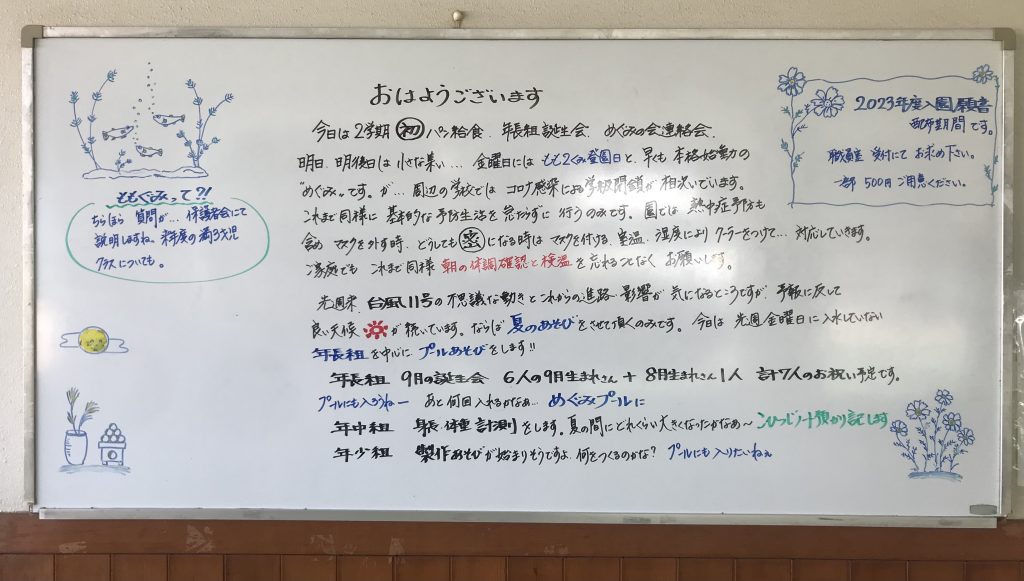 おはようございます
今日は2学期 初 パン給食、年長組誕生会、めぐみの会連絡会、
明日、明後日は小さな集い… 金曜日には ももぐみ登園日と、早くも本格始動の
“めぐみっ子”です。が… 周辺の学校では コロナ感染による学級閉鎖が 相次いでいます。
これまで同様に 基本的な予防生活を 怠らずに 行うのみです。園では 熱中症予防も
含め マスクを外す時、どうしても 密 になる時は マスクを付ける、室温、湿度により クーラーをつけて… 対応していきます。
ご家庭でも これまで同様 朝の体調確認と検温を 忘れることなく お願いします。
先週末、台風11号の 不思議な動きと これからの進路・影響が 気になるところですが、予報に反して
良い天候 が続いています。ならば 夏のあそびをさせて頂くのみです。今日は 先週金曜日に入水していない
年長組を中心に プールあそびをします!!
年長組 9月の誕生会 6人の9月生まれさん + 8月生まれさん1人 計7人のお祝い予定です。
プールにも入ろうねー あと何回入れるかなぁ… めぐみプールに
年中組 身長・体重計測をします。夏の間にどれくらい大きくなったかなぁ～ こひつじノート預かり記します
年少組 製作あそびが始まりそうですよ、何をつくるのかな? プールにも入りたいねぇ
ももぐみって?!
ちらほら 質問が… 保護者会にて
説明しますね。来年度の満3才児
クラスについても。
2023年度入園願書
配布期間です。
職員室 受付にて お求め下さい。
一部 500円 ご用意ください。